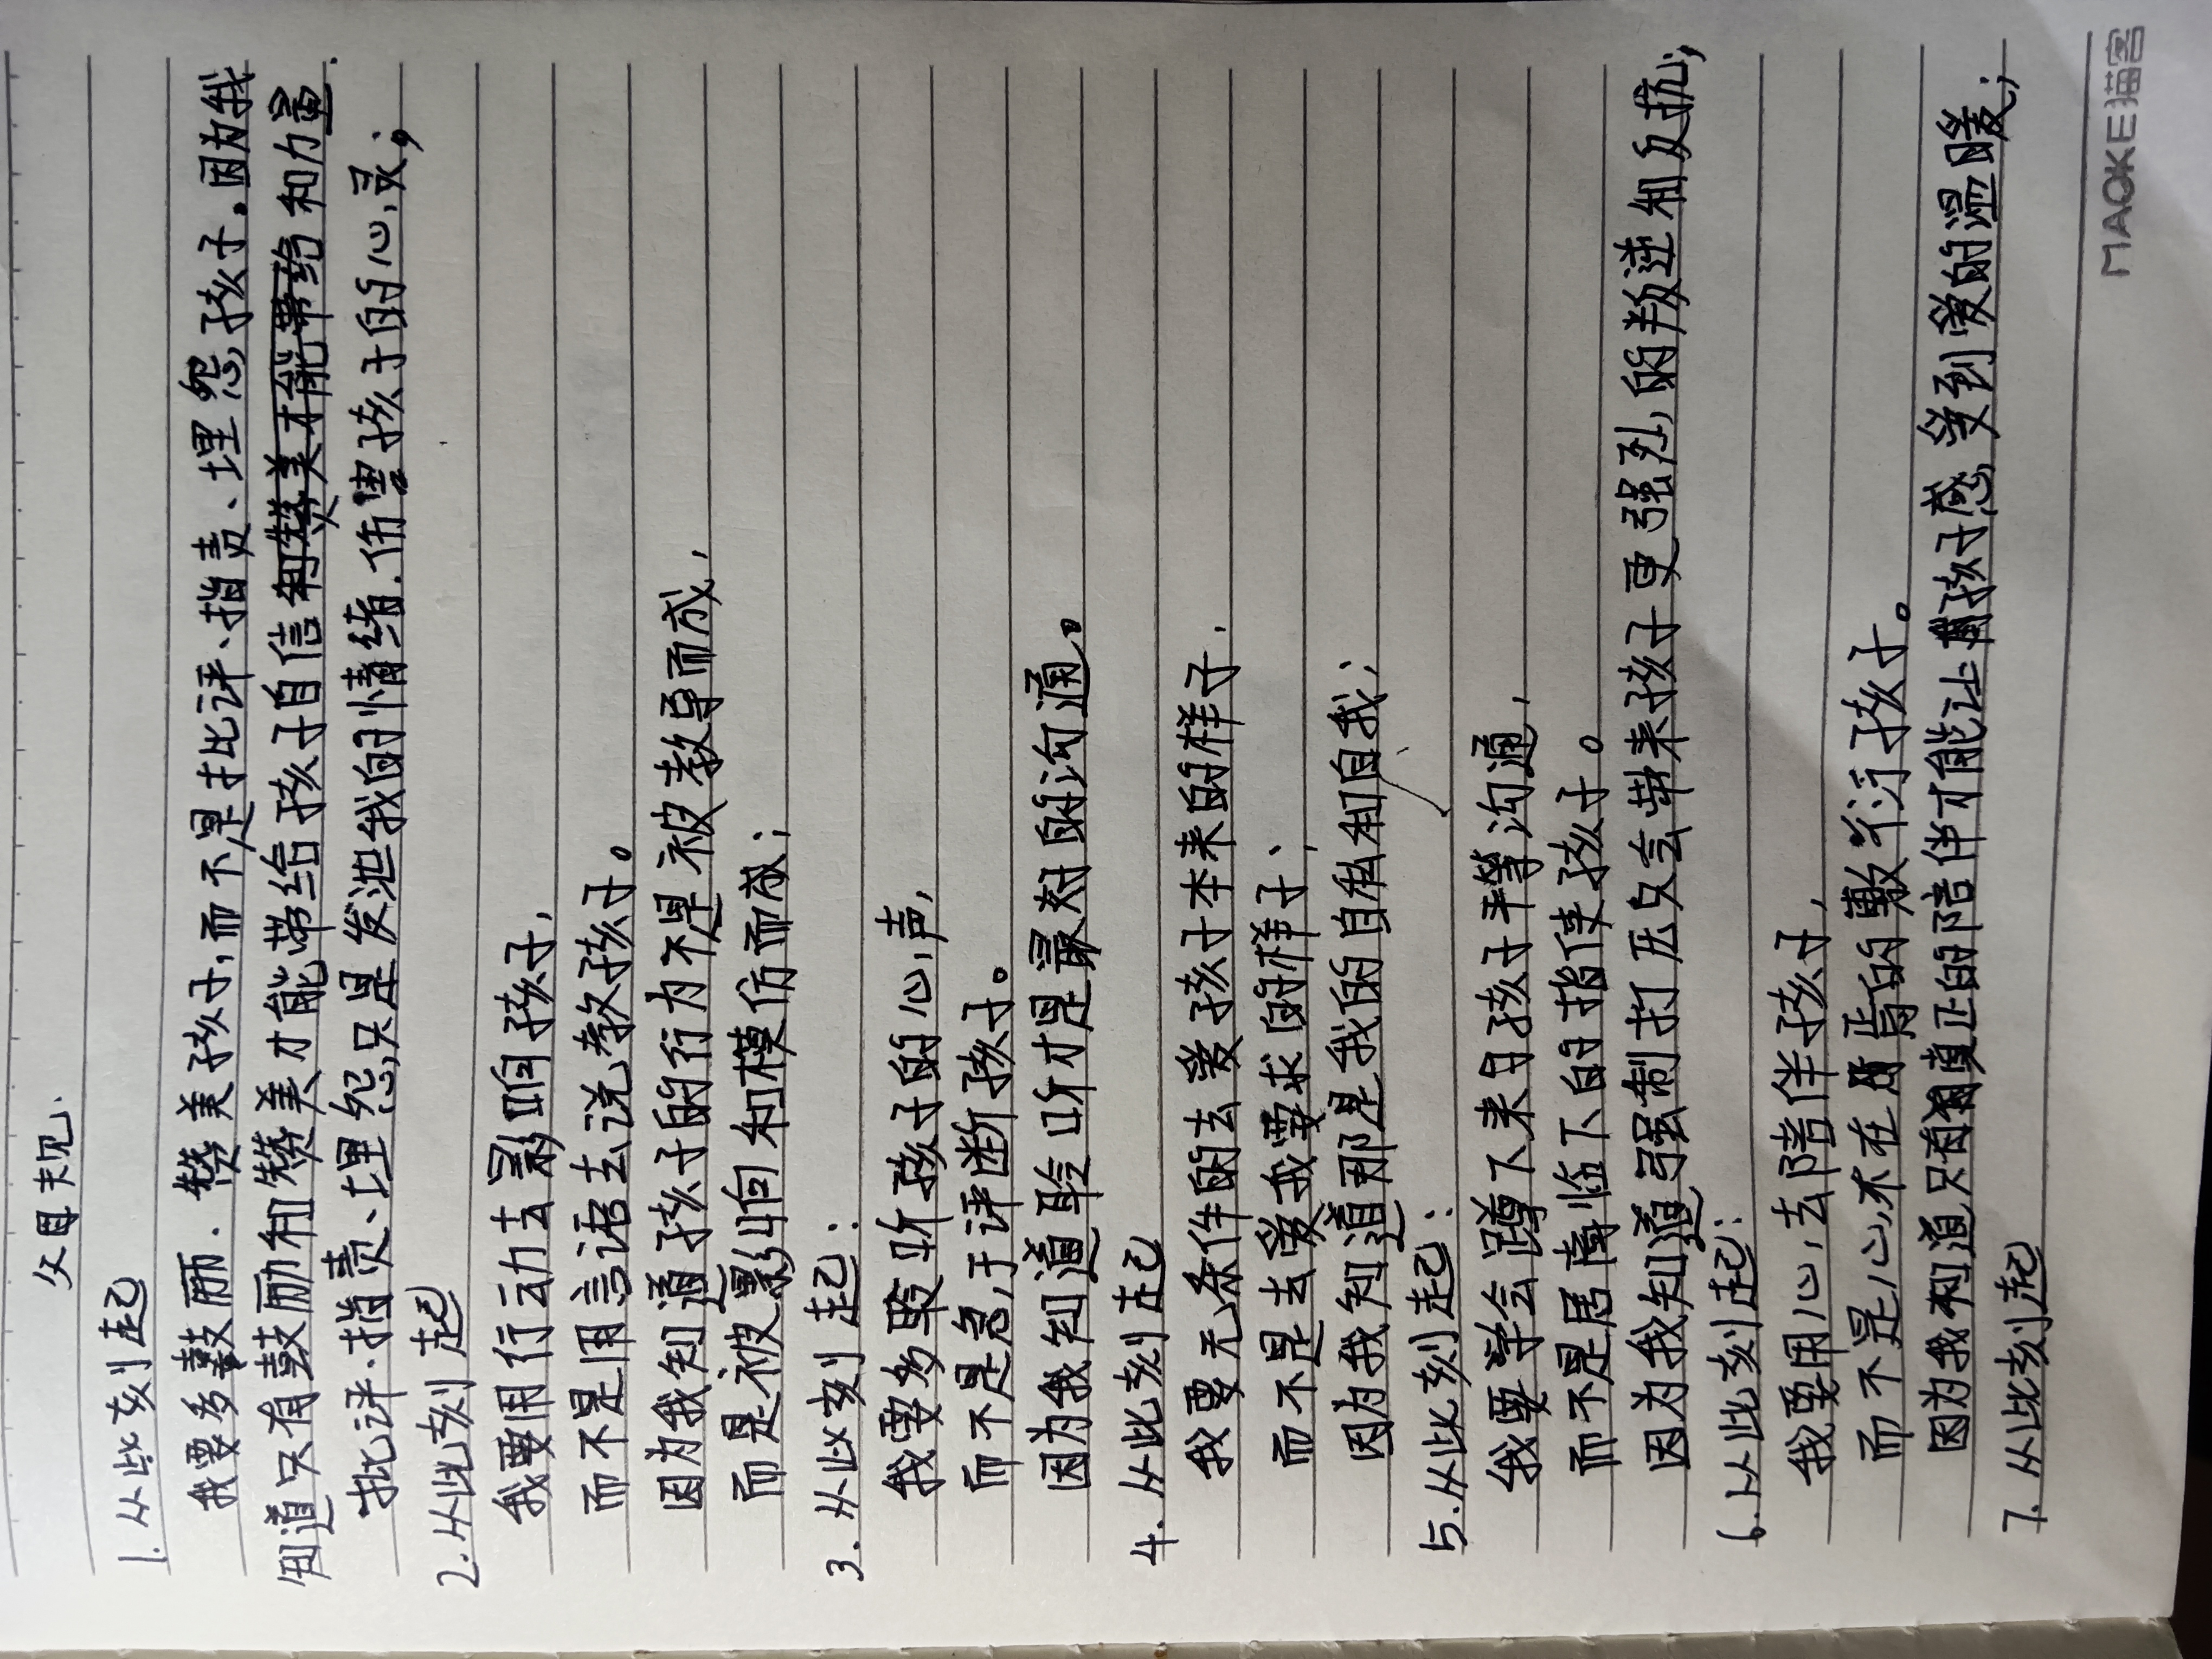 父母规.
1. 从此刻起
我要多鼓励.赞美孩子,而不是批评、指责、埋怨孩子.因为我
知道只有鼓励和赞美才能带给孩子自信和力量.
批评.指责、埋怨,只是发泄我的情绪.伤害孩子的心灵;
2. 从此刻起
我要用行动去影响孩子,
而不是用言语去说教孩子。
因为我知道孩子的行为不是被教导而成,
而是被影响和模仿而成;
3. 从此刻起:
我要多聆听孩子的心声,
而不是急于评断孩子。
因为我知道聆听才是最好的沟通。
4. 从此刻起
我要无条件的去爱孩子本来的样子.
而不是去爱我要求的样子、
因为我知道那是我的自私和自我;
5. 从此刻起:
我要学会蹲下来同孩子平等沟通,
而不是居高临下的指使孩子。
因为我知道强制打压只会带来孩子更强烈的叛逆和反抗;
6. 从此刻起:
我要用心去陪伴孩子,
而不是心不在焉的敷衍孩子。
因为我知道只有真正的陪伴才能让孩子感受到爱的温暖;
7. 从此刻起
MAOKE猫客